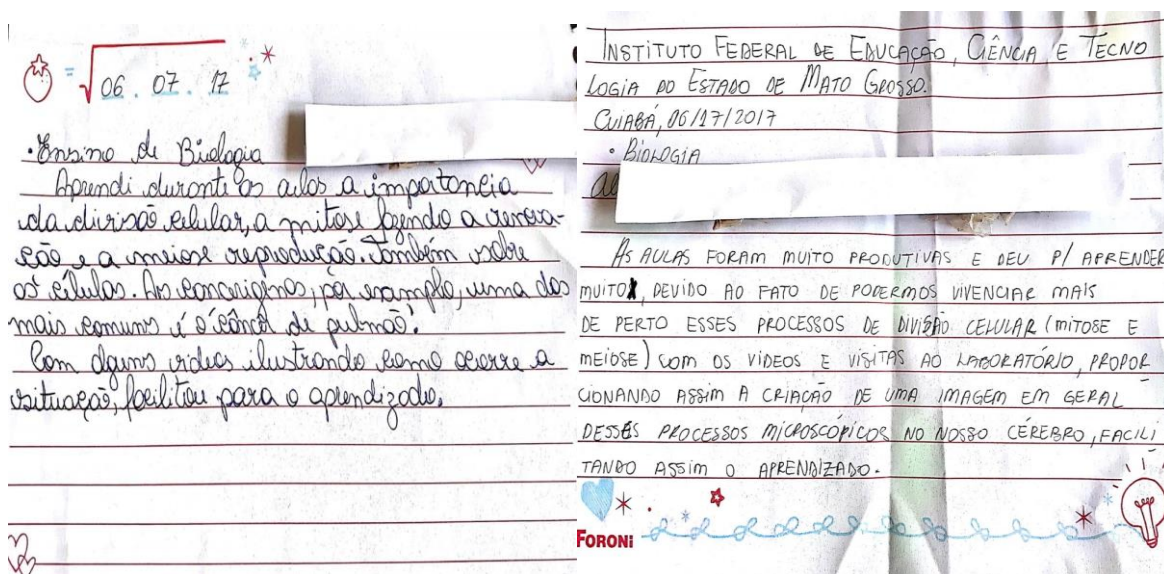 06.07.17
• Ensino de Biologia
Aprendi durante as aulas a importancia
da divisão celular, a mitose fazendo a
ção e a meiose reprodução. Também sobre
as células. As cancerígenas, por exemplo, uma das
mais comuns é o câncer de pulmão.
Com alguns vídeos ilustrando como ocorre a
situação, facilitou para o aprendizado.
INSTITUTO FEDERAL DE EDUCAÇÃO, CIÊNCIA E TECNO
LOGIA DO ESTADO DE MATO GROSSO.
CUIABÁ, 06/17/2017
• BIOLOGIA
AS AULAS FORAM MUITO PRODUTIVAS E DEU P/ APRENDER
MUITO, DEVIDO AO FATO DE PODERMOS VIVENCIAR MAIS
DE PERTO ESSES PROCESSOS DE DIVISÃO CELULAR (MITOSE E
MEIOSE) COM OS VIDEOS E VISITAS AO LABORATÓRIO, PROPOR
CIONANDO ASSIM A CRIAÇÃO DE UMA IMAGEM EM GERAL
DESSES PROCESSOS MICROSCÓPICOS NO NOSSO CÉREBRO, FACILI
TANDO ASSIM O APRENDIZADO.
FORONI